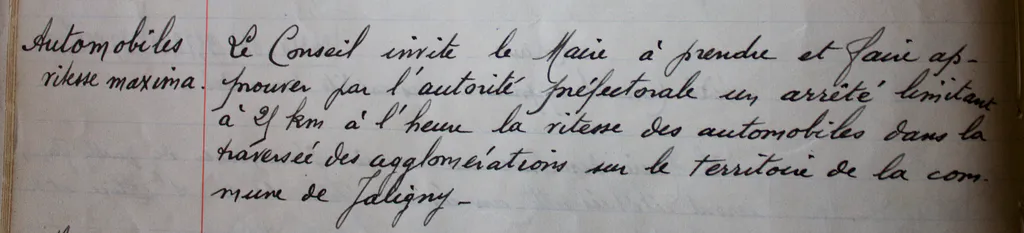 Automobiles
vitesse maxima.
Le Conseil invite le Maire à prendre et faire ap-
prouver par l'autorité préfectorale un arrêté limitant
à 25 km à l'heure la vitesse des automobiles dans la
traversée des agglomérations sur le territoire de la com-
mune de Jaligny -